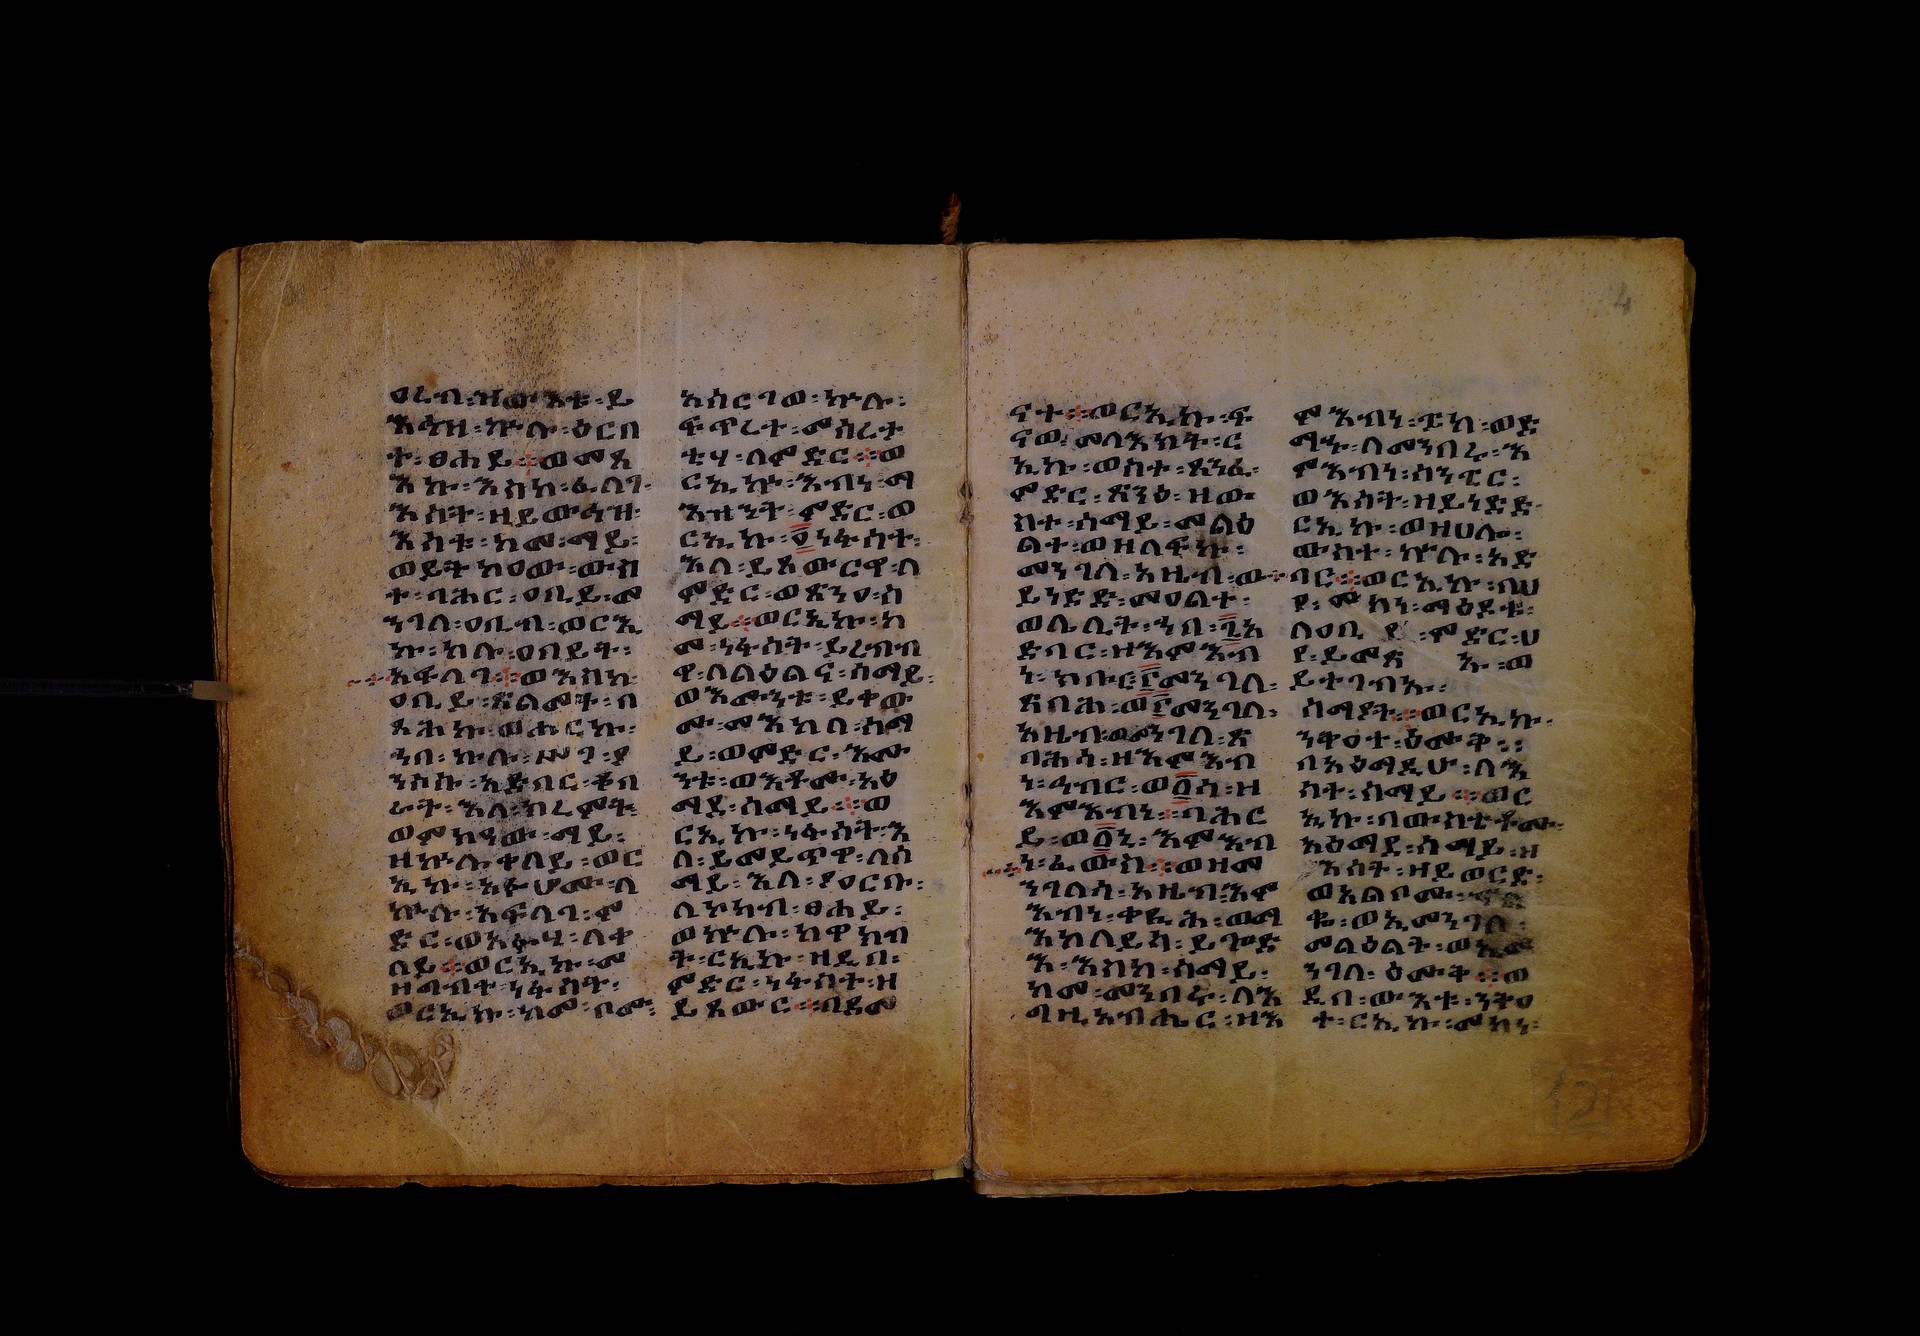 ዐረብ፡ዝውእቱ፡ይ
እኅዝ፡ኵሎ፡ዕርበ
ተ፡ፀሐይ።ወመጻ
እኩ፡እስከ፡ፈለገ፡
እሳት፡ዘይውኅዝ፡
እሳቱ፡ከመ፡ማይ፡
ወይትከዐው፡ውስ
ተ፡ባሕር፡ዐቢይ፡መ
ንገለ፡ዐቢብ፡ወርኢ
ኩ፡ኵሎ፡ዐበይት፡
አፍላገ።ወእስከ፡
ዐቢይ፡ጽልመት፡በ
ጻሕኩ፡ወሖርኩ፡
ኀበ፡ኵሉ፡ሥጋ፡ያ
ንሶሱ፡አድባር፡ቆባ
ራት፡እለ፡ክረምት፡
ወምክዓው፡ማይ፡
ዘኵሉ፡ቀላይ፡ወር
ኢኩ፡አፉሆሙ፡ለ
ኵሉ፡አፍላገ፡ም
ድር፡ወአፉሃ፡ለቀ
ላይ።ወርኢኩ፡መ
ዛግብተ፡ነፋሳት፡
ወርኢኩ፡ከመ፡ቦሙ፡
አሰርገወ፡ኵሎ፡
ፍጥረተ፡መሰረታ
ቲሃ፡ለምድር።ወ
ርኢኩ፡እብነ፡ማ
እዝንት፡ምድር፡ወ
ርኢኩ፡፬ነፋሳተ፡
እለ፡ይጸውርዋ፡ለ
ምድር፡ወጽንዐ፡ሰ
ማይ።ወርኢኩ፡ከ
መ፡ነፋሳት፡ይረብብ
ዋ፡ለልዕልና፡ሰማይ፡
ወእሙንቱ፡ይቀው
ሙ፡መእከለ፡ሰማ
ይ፡ወምድር፡እሙ
ንቱ፡ወእቶሙ፡አዕ
ማደ፡ሰማይ።ወ
ርኢኩ፡ነፋሳት፡እ
ለ፡ይመይጥዋ፡ለሰ
ማይ፡እለ፡የዐርቡ፡
ለክበብ፡ፀሐይ፡
ወኵሎ፡ከዋክብ
ት፡ርኢኩ፡ዘዲበ፡
ምድር፡ነፋሳተ፡ዘ
ይጸውር።በደመ
ናተ።ወርኢኩ፡ፍ
ናወ፡መላእክት፡ር
ኢኩ፡ውስተ፡ጽንፈ፡
ምድር፡ጽንዕ፡ዘው
ስተ፡ሰማይ፡መልዕ
ልተ፡ወኀለፍኩ፡
መንገለ፡አዜብ፡ወ
ይነድድ፡መዐልተ፡
ወሌሊት፡ኀበ፡፯አ
ድባር፡ዘእምእብ
ን፡ክቡር፡፫መንገለ፡
ጽባሕ፡ወ፫መንገለ፡
አዜብ፡ወመንገለ፡ጽ
ባሕሰ፡ዘእምእብ
ን፡ኅብር፡ወ፩ሰ፡ዘ
እምእብነ።ባሕር
ይ፡ወ፩ኒ፡እምእብ
ነ፡ፈውስ።ወዘመ
ንገለሰ፡አዜብ፡እም
እብነ፡ቀይሕ፡ወማ
እከላይሰ፡ይጐድ
እ፡እስከ፡ሰማይ፡
ከመ፡መንበሩ፡ለእ
ግዚአብሔር፡ዘእ
ምእብነ፡ፔካ፡ወድ
ማኁ፡ለመንበሩ፡እ
ምእብነ፡ሰንፔር፡
ወእሳት፡ዘይነድድ፡
ርኢኩ፡ወዘሀሎ፡
ውስተ፡ኵሉ፡አድ
ባር።ወርኢኩ፡በህ
የ፡መካነ፡ማዕዶቱ፡
ለዐቢይ፡ምድር፡ህ
የ፡ይመጽእ፡ወ
ይተጋብኡ፡
ሰማያት።ወርኢኩ፡
ንቅዐተ፡ዕሙቅ፡
በአዕማዲሁ፡ለእ
ሳተ፡ሰማይ።ወር
ኢኩ፡በውስቴቶሙ፡
አዕማደ፡ሰማይ፡ዘ
እሳት፡ዘይወርድ፡
ወአልቦሙ፡
ቍ፡ወኢመንገለ፡
መልዕልት፡ወኢመ
ንገለ፡ዕሙቅ።ወ
ዲበ፡ውእቱ፡ንቅዐ
ት፡ርኢኩ፡መካነ፡
4
12